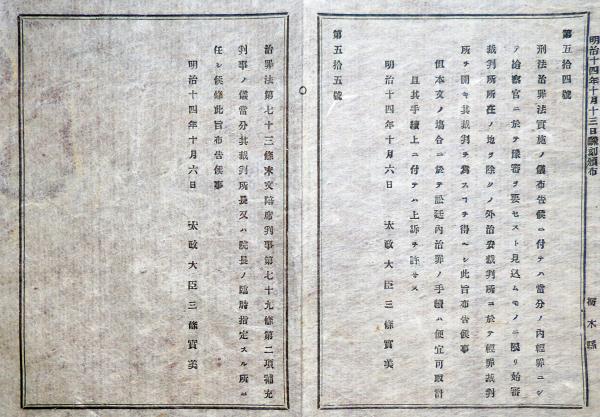 明治十四年十月十三日飜刻頒布
栃木縣
第五拾四號
刑法治罪法實施ノ儀布告候ニ付テハ當分ノ内輕罪ニシ
テ治察官ニ於テ豫審ヲ要セスト見込ムモノニ限リ始審
裁判所所在ノ地ヲ除クノ外治安裁判所ニ於テ輕罪裁判
所ヲ開キ其裁判ヲ爲スコヲ得ヘシ此旨布告候事
但本文ノ塲合ニ於テ訟廷内治罪ノ手續ハ便宜可取計
且其手續上ニ付テハ上訴ヲ許サス
明治十四年十月六日 太政大臣三條實美
第五拾五號
治罪法第七十三條末文陪席判事第七十九條第二項補充
判事ノ儀當分其裁判所長又ハ院長ノ臨時指定スル所ニ
任シ候條此旨布告候事
明治十四年十月六日 太政大臣三條實美